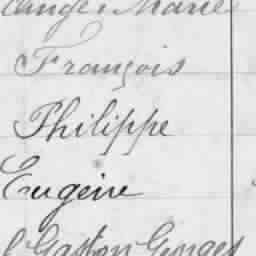 Ange Marie
François
Philippe
Eugène
Gaston Georges